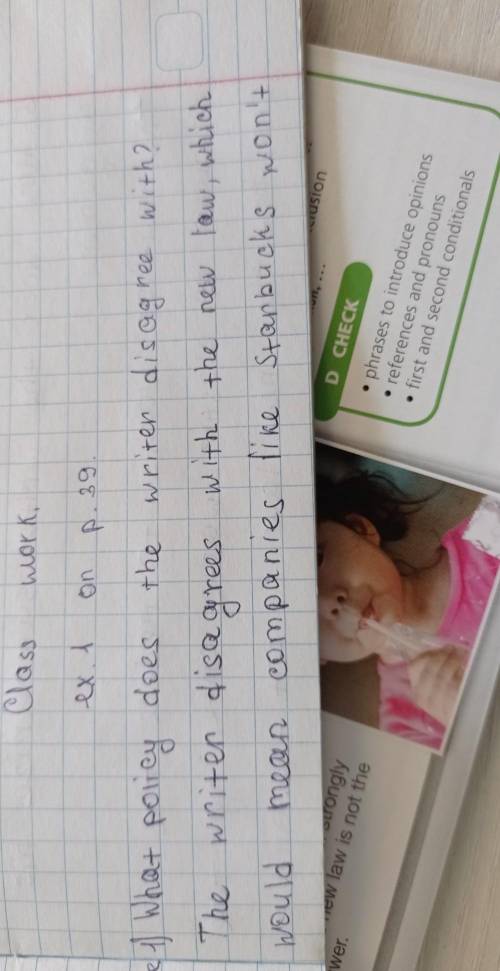 Class work.
ex. 1 on p. 39.
1) What policy does the writer disagree with?
The writer disagrees with the new law, which
would mean companies like Starbucks won't
D CHECK
• phrases to introduce opinions
• references and pronouns
• first and second conditionals
strongly
new law is not the
wer.